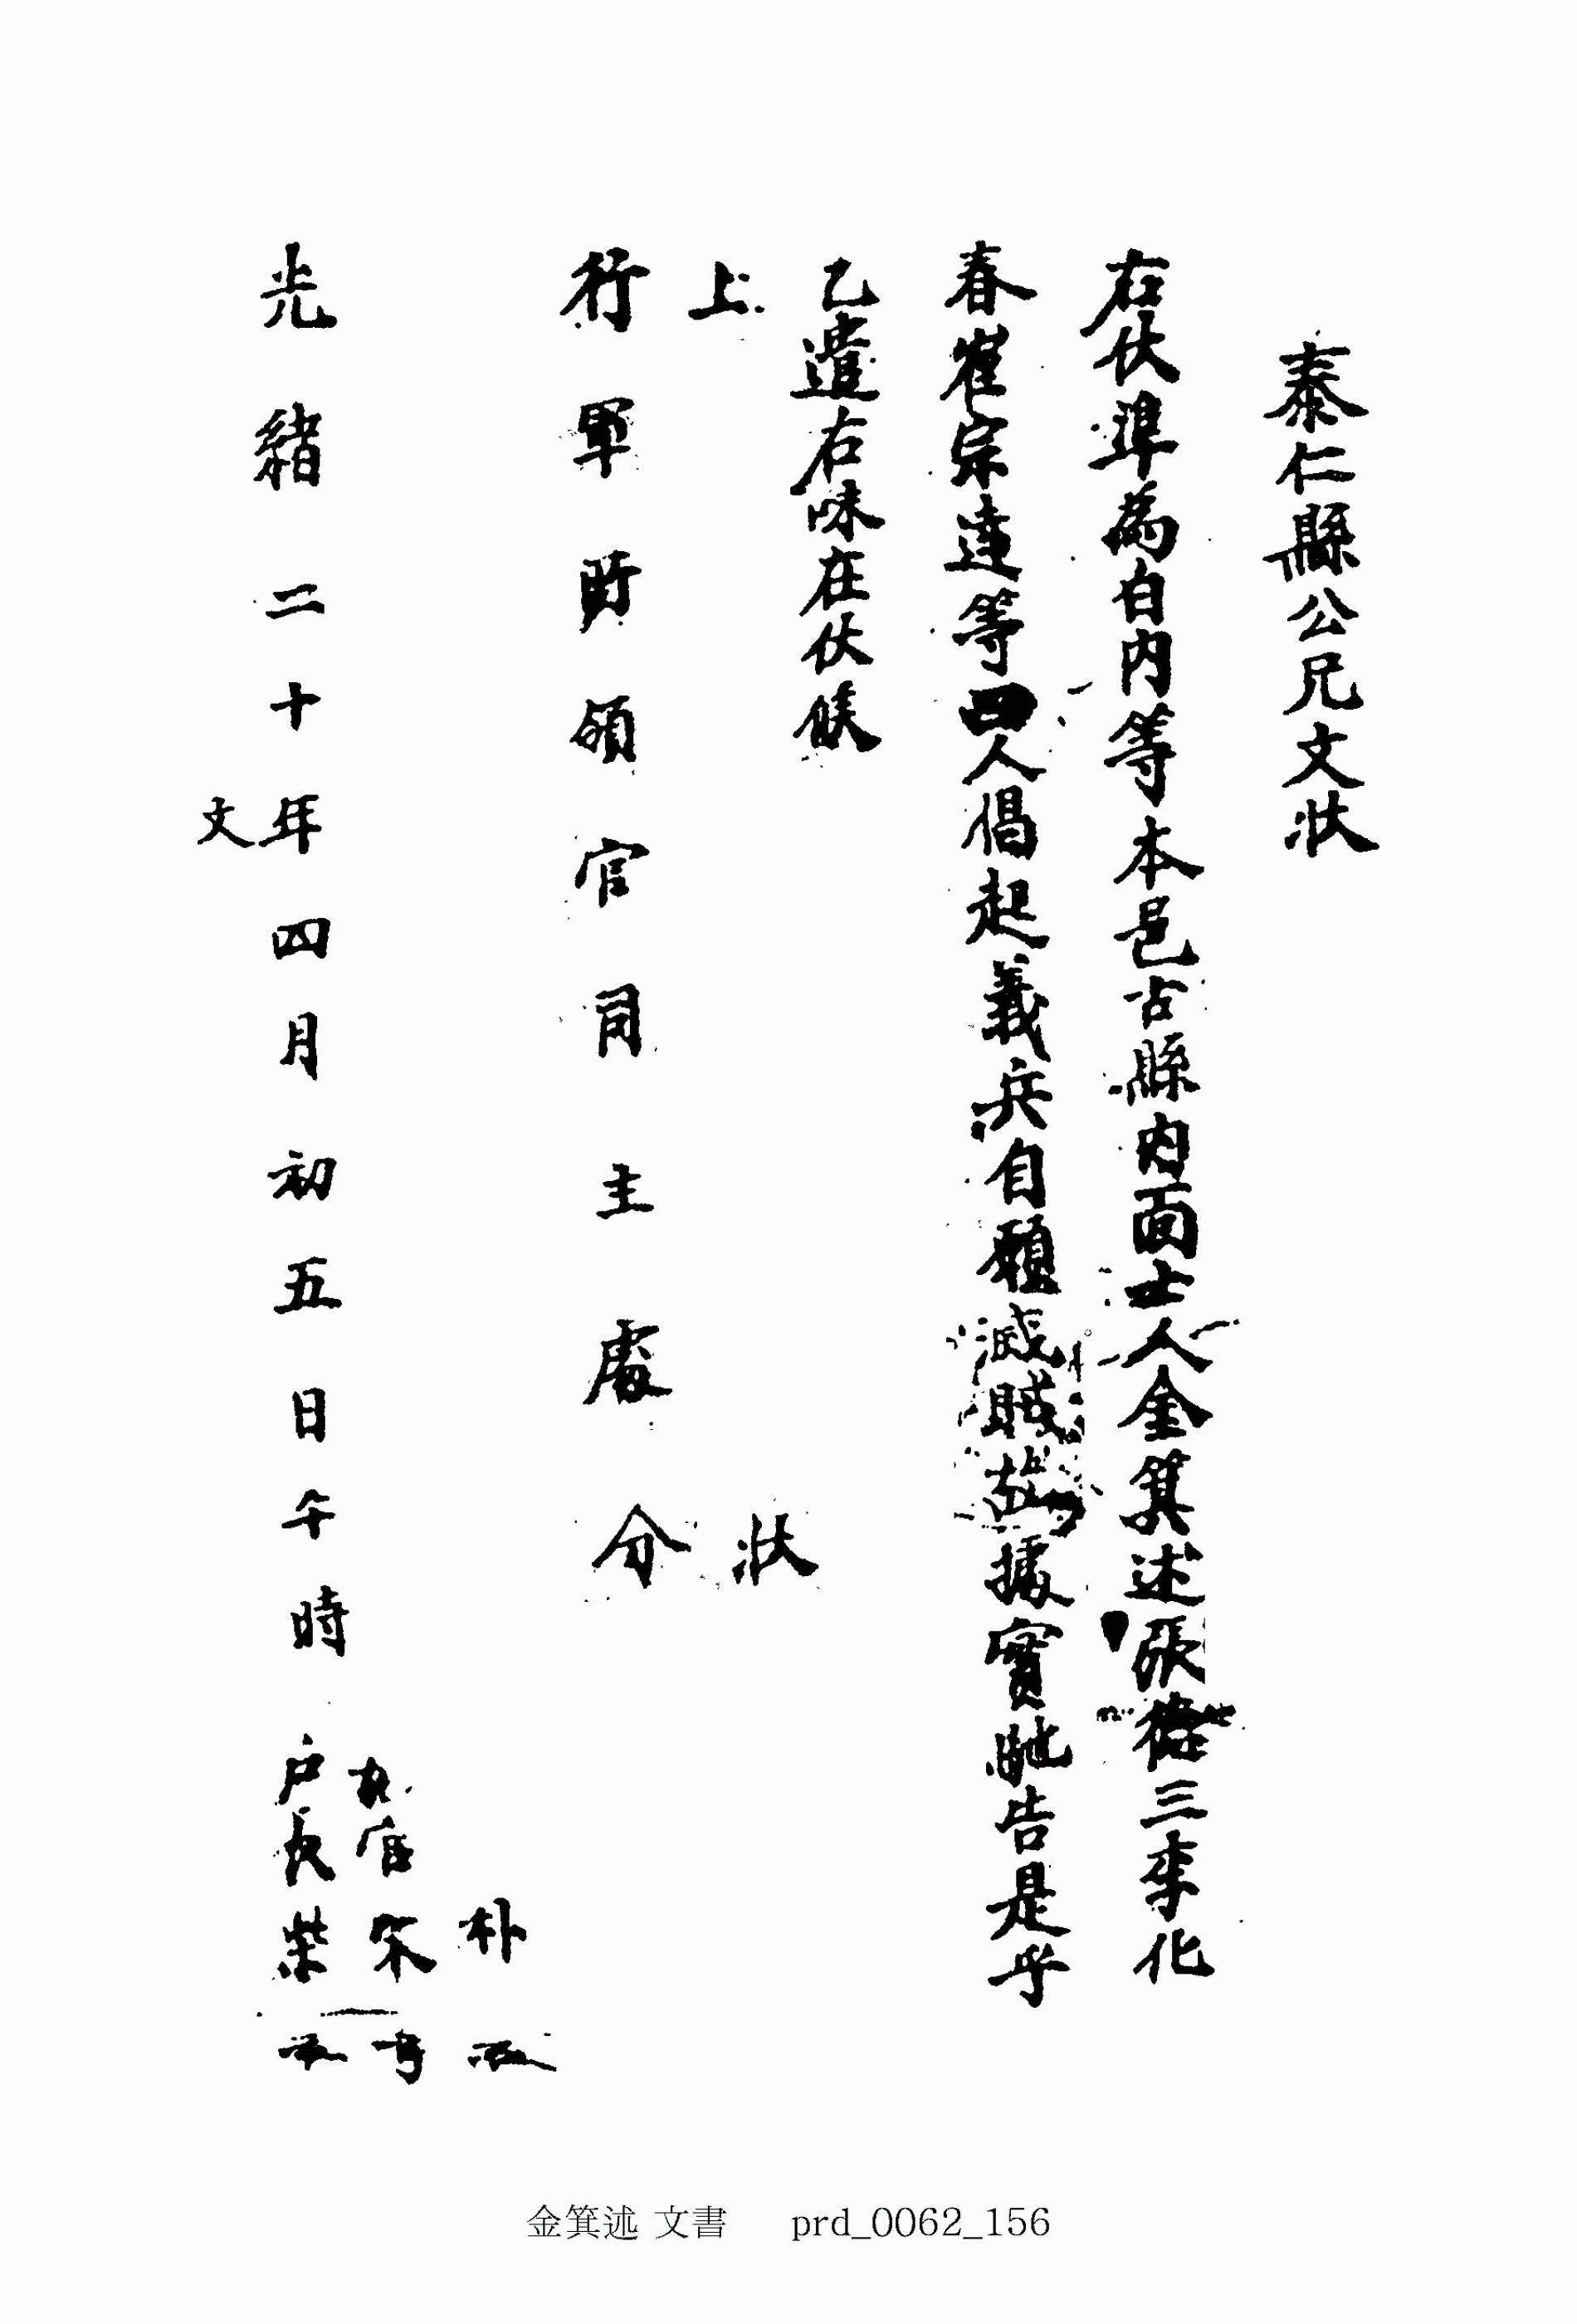 泰仁縣公兄文狀
右伏準為白內等本邑古縣內面士人金箕述張三李化
春崔宗達等四人倡起義兵自願滅賊故據實馳告是乎
乙遣右味在伏候
上 狀
行軍領官司主處分
朴
官宋
光緒二十年四月初五日午時 戶長柴
文
金箕述 文書 prd_0062_156